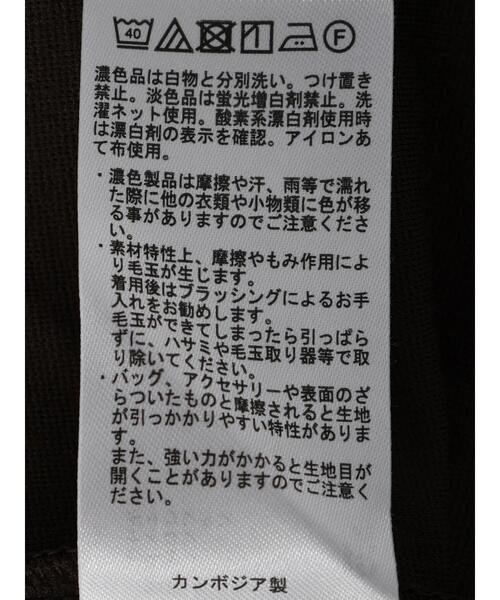 40 F
濃色品は白物と分別洗い。つけ置き
禁止。淡色品は蛍光増白剤禁止。洗
濯ネット使用。酸素系漂白剤使用時
は漂白剤の表示を確認。アイロンあ
て布使用。
・濃色製品は摩擦や汗、雨等で濡れ
た際に他の衣類や小物類に色が移
る事がありますのでご注意くださ
い。
・素材特性上、摩擦やもみ作用によ
り毛玉が生じます。
着用後はブラッシングによるお手
入れをお勧めします。
毛玉ができてしまったら引っぱら
ずに、ハサミや毛玉取り器等で取
り除いてください。
・バッグ、アクセサリーや表面のざ
らついたものと摩擦されると生地
が引っかかりやすい特性がありま
す。
また、強い力がかかると生地目が
開くことがありますのでご注意く
ださい。
カンボジア製